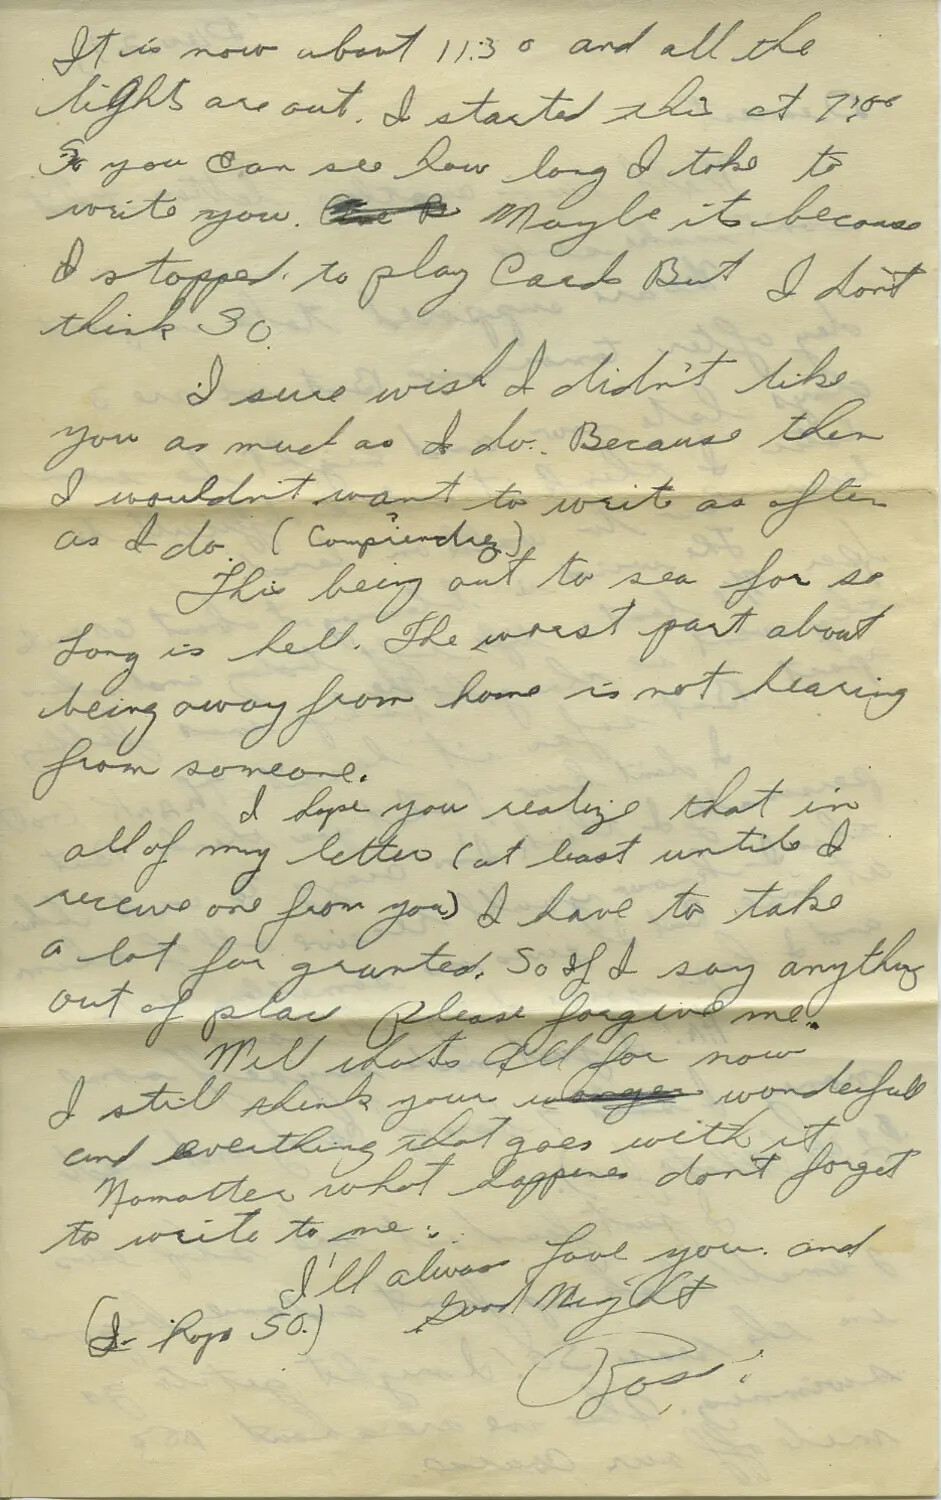 It is now about 11:30 and all the
lights are out. I started this at 7:00
So you can see how long I take to
write you. Maybe its because
I stopped to play Cards But I don't
think SO.
I sure wish I didn't like
you as much as I do. Because then
I wouldn't want to write as often
as I do. (Compriendrez?)
This being out to sea for so
Long is hell. The worst part about
being away from home is not hearing
from someone.
I hope you realize that in
all of my letters (at least until I
receive one from you) I have to take
a lot for granted. So If I say anything
out of place Please forgive me.
Well that's All for now
I still think your wonderful
and everthing that goes with it
Nomatter what happenes don't forget
to write to me.
I'll always Love you. and
Good Night
(I Hope SO.)
Ross